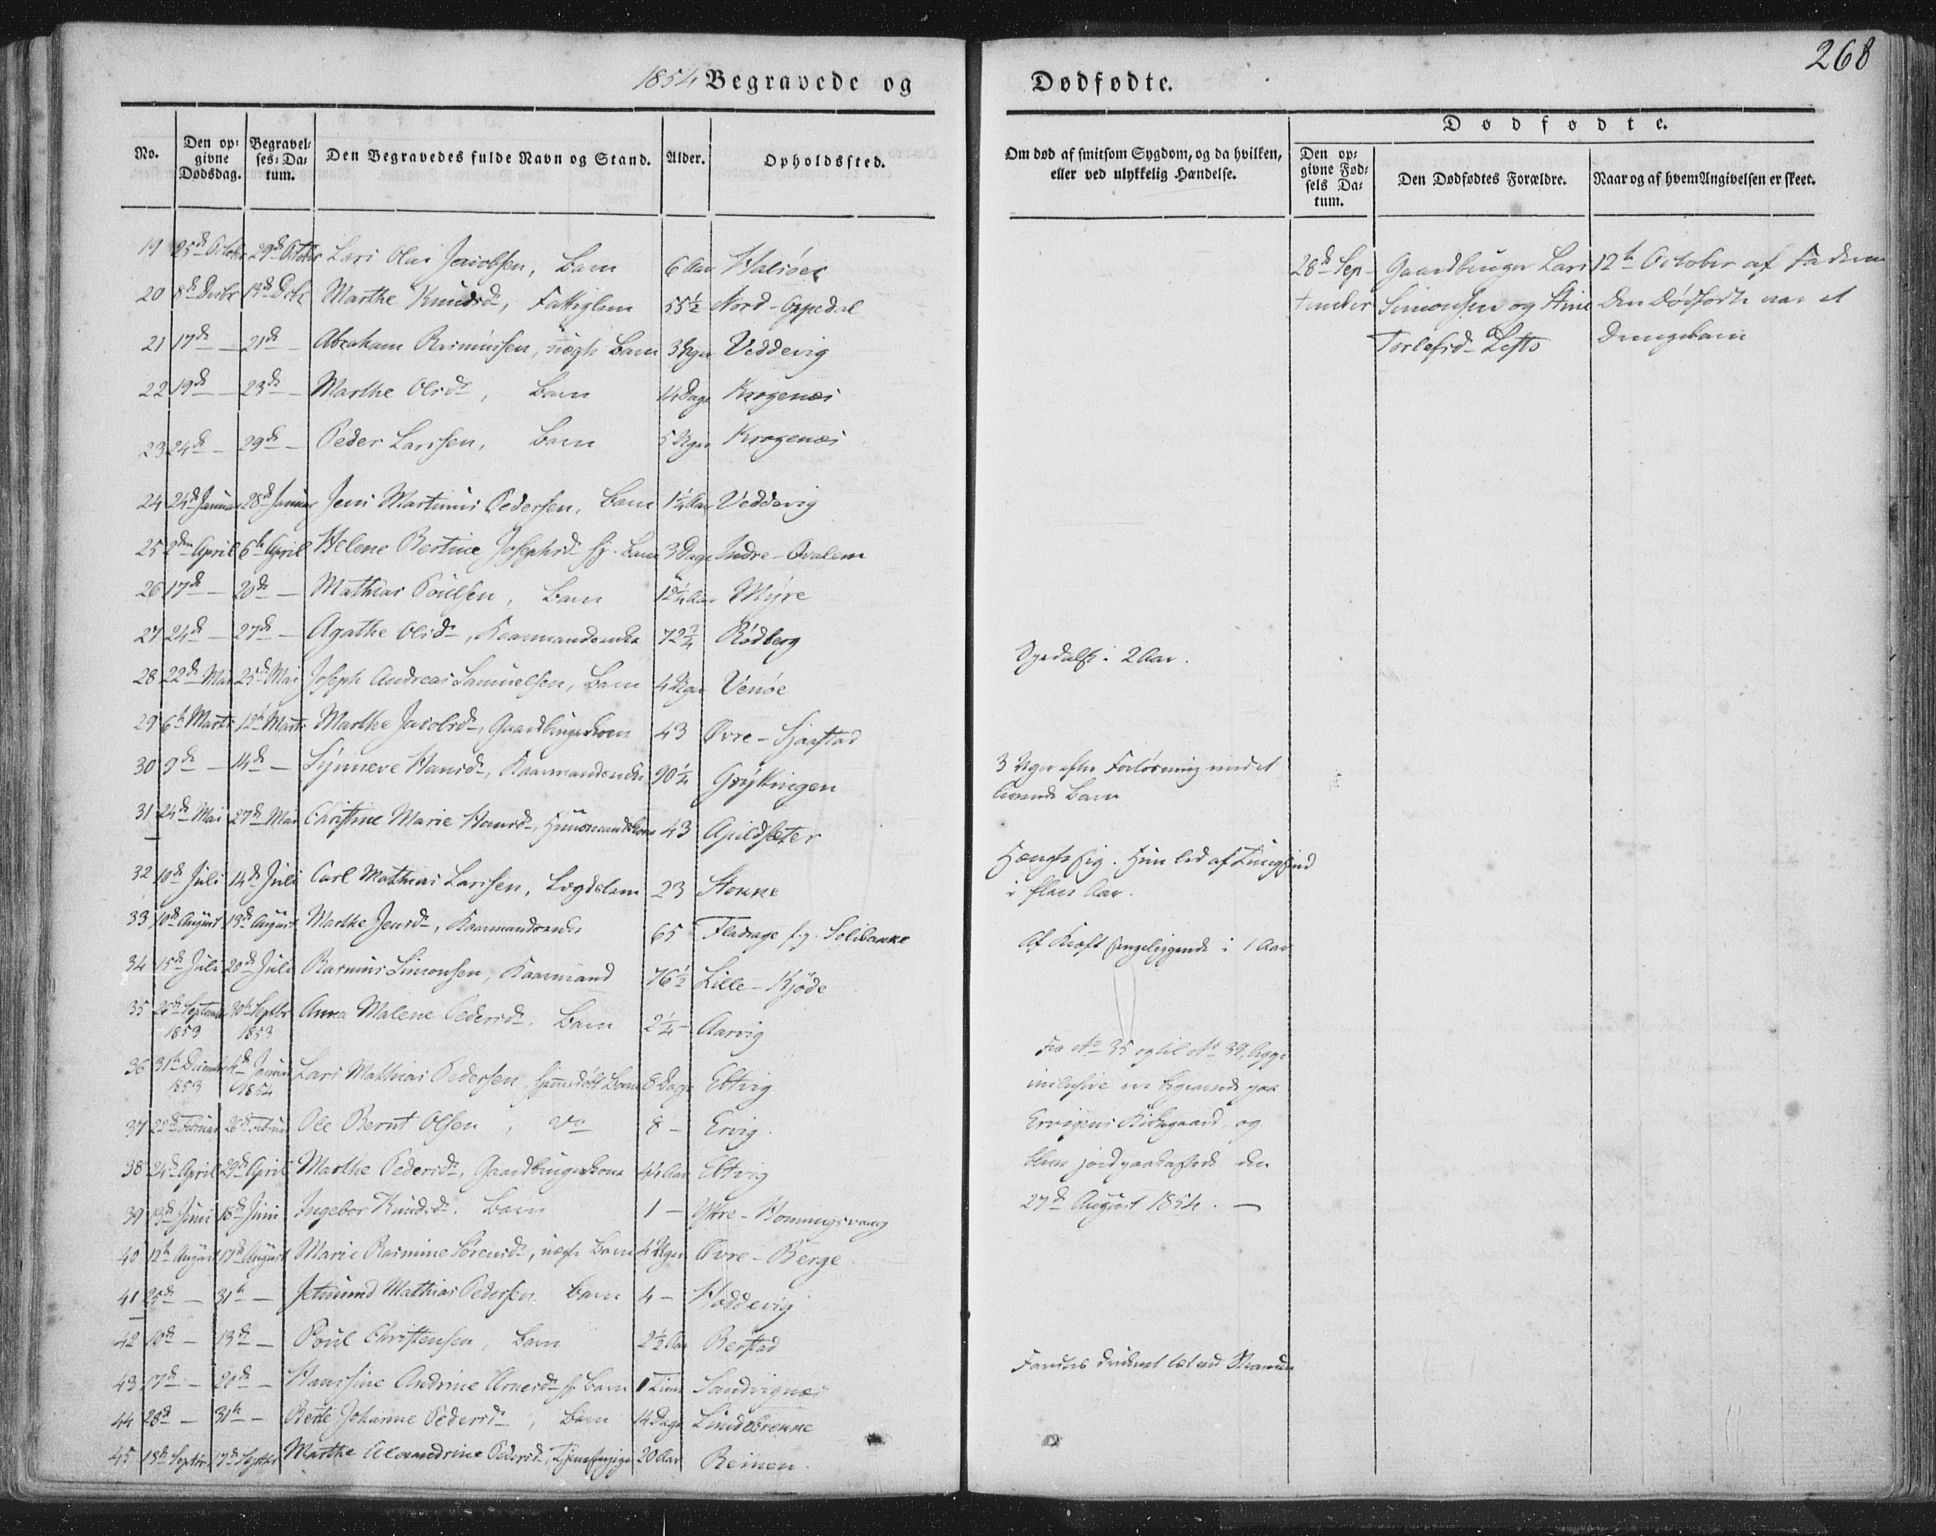 1854 Begravede og
Dødfødte.
268
No.
Den op-
givne
Dødsdag.
Begravel-
ses-Da-
tum.
Den Begravedes fulde Navn og Stand.
Alder.
Opholdssted.
Om død af smitsom Sygdom, og da hvilken,
eller ved ulykkelig Hændelse.
Dødfødte.
Den op-
givne Fød-
sels Da-
tum.
Den Dødfødtes Forældre.
Naar og af hvem Angivelsen er skeet.
19 25de October 29de October Lars Olai Jacobsen, Barn 6 Aar
20 8de Decbr 13de Decbr Marthe Knudsd., Fattiglem 55½ Nord-Oppedal
21 17de — 21de — Abraham Rasmussen, uægte Barn 3 Uger Veddevig
22 19de — 23de — Marthe Olsd., Barn 14 Dage Krogenæs
23 24de — 29de — Peder Larssen, Barn 5 Uger Krogenæs
24 24de Januar 28de Januar Jens Martinus Pedersen, Barn 1¼ Aar Veddevig
25 2den April 6te April Helene Bertine Josephsd. Barn 3 Dage Indre-Qvalem
26 17de — 20de — Mathias Poulsen, Barn 12¼ Aar Myre
27 24de — 27de — Agathe Olsd., Kaarmandsenke 72¾ Rødberg
28 22de Mai 25de Mai Joseph Andreas Samuelsen, Barn 4 Uger Venøe
29 6te Marts 12te Marts Marthe Jacobsd., Gaardbrugerkone 43 Øvre-Sjaastad
30 9de — 14de — Synneve Hansd., Kaarmandsenke 90¼ Grytingen
31 24de Mai 27de Mai Christine Marie Hansd., Huusmandskone 43 Apildsæter
32 10de Juli 14de Juli Carl Mathias Larssen, Lægdslem 23 Stokke
33 10de August 13de August Marthe Jensd., Kaarmandsenke 65 Fladrage Solibakke
34 15de Juli 20de Juli Rasmus Simonsen, Kaarmand 76½ Lille-Kjøde
35 26de September 30te Septbr Anna Malene Pedersd. Barn 2¼ — Aarvig
1853 1853
36 31te December 4de Januar Lars Mathias Pedersen, hjemmedøbt Barn 8 Dage Ettvig
1853 1854
37 22de Februar 26de Februar Ole Bernt Olsen, Do 8 — Ervig
38 24de April 29de April Marthe Pedersd., Gaardbrugerkone 44 Aar Ettvig
39 13de Juni 18de Juni Ingebor Knudsd. Barn 1 — Yttre-Honningsvaag
40 12te August 17de August Marie Rasmine Sørensd., uægte Barn 4 Uger Øvre-Berge
41 25de — 31te — Mathias Pedersen, Barn 4 — Hoddevig
42 10de — 13de — Poul Christensen, Barn 2½ Aar Berstad
43 17de — 20de — Hansine Andrine Arnesd. Barn 1 Time Sandvignæs
44 28de — 31te — Berte Johanne Pedersd., Barn 14 Dage Lindebrekke
45 13de Septbr 17de Septbr Marthe Alexandrine Pedersd., Tjenestepige 20 Aar Reinen.
Spedalsk i 2 Aar.
3 Uger efter Forløsning med et
levende Barn
Hængte sig. Hun led af Tungsind
i flere Aar.
Af Kræft sengeliggende i 1 Aar
Fra No 35 og til No 39, begge
inclusive, ere begravede paa
Ervigens Kirkegaard, og
bleve jordpaakastede den
27de August 1854. —
Fandtes druknet tæt ved Stranden
28de Sep-
tember
Gaardbruger Lars
Simonsen og Stine
Torlefsd. Lefto
12te October af Faderen
Den Dødfødte var et
Drengebarn